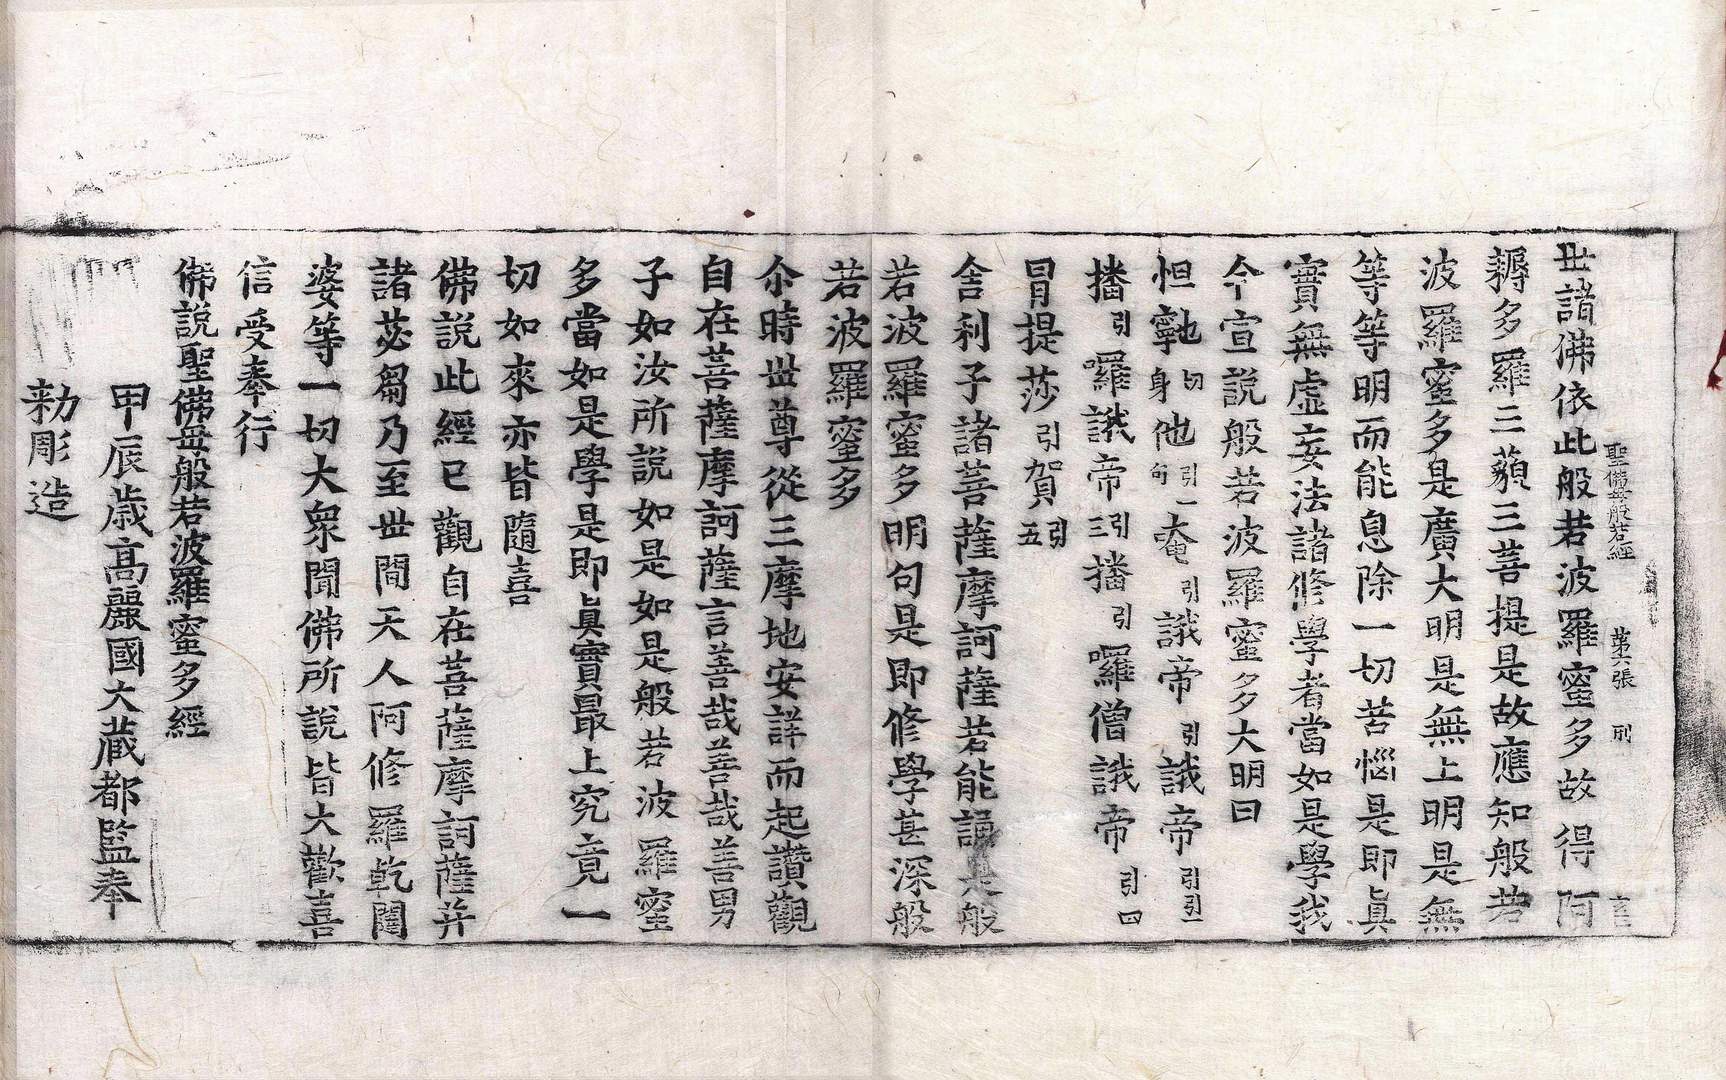 聖佛母般若經 第六張 刑
世諸佛依此般若波羅蜜多故得阿
耨多羅三藐三菩提是故應知般若
波羅蜜多是廣大明是無上明是無
等等明而能息除一切苦惱是即眞
實無虛妄法諸修學者當如是學我
今宣說般若波羅蜜多大明曰
怛寧也切身他引一句唵引誐帝引誐帝引引二
播引囉誐帝引三播引囉僧誐帝引四
冒提莎引賀引五
舍利子諸菩薩摩訶薩若能誦是般
若波羅蜜多明句是即修學甚深般
若波羅蜜多
尒時世尊從三摩地安詳而起讚觀
自在菩薩摩訶薩言善哉善哉善男
子如汝所說如是如是般若波羅蜜
多當如是學是即眞實最上究竟一
切如來亦皆隨喜
佛說此經已觀自在菩薩摩訶薩幷
諸苾芻乃至世間天人阿修羅乾闥
婆等一切大衆聞佛所說皆大歡喜
信受奉行
佛說聖佛母般若波羅蜜多經
甲辰歲高麗國大藏都監奉
勑彫造